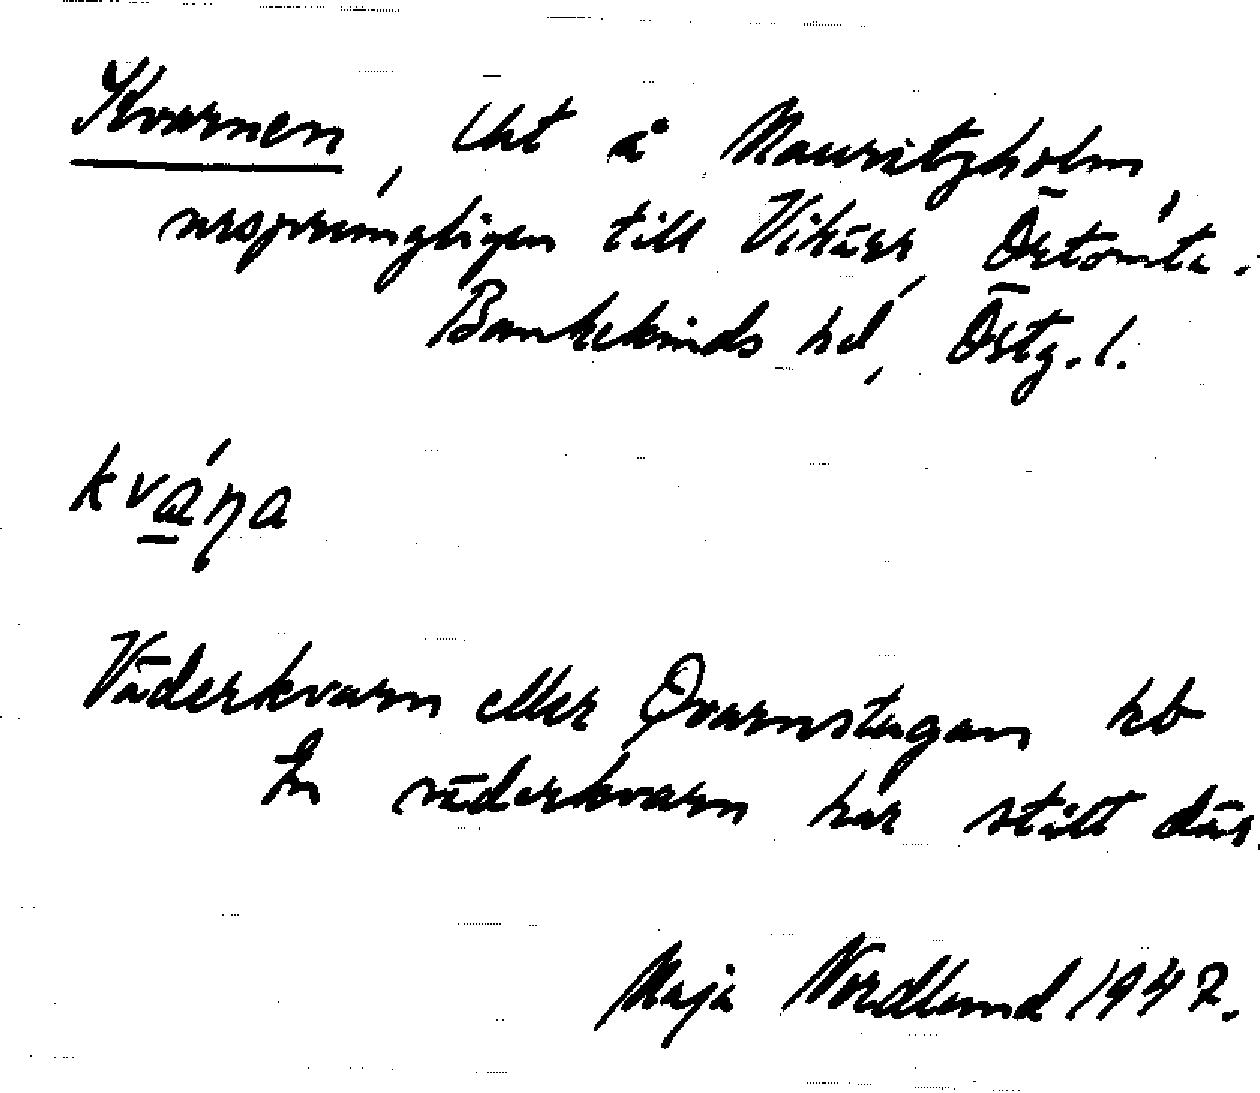 Kvarnen, lht å Mauritzholm,
ursprungligen till Vikärr, Örtomta.
Bankekinds hd, Östg. l.
kvána
Väderkvarn eller Qvarnstugan hb
En väderkvarn har stått där.
Maja Nordlund 1947.